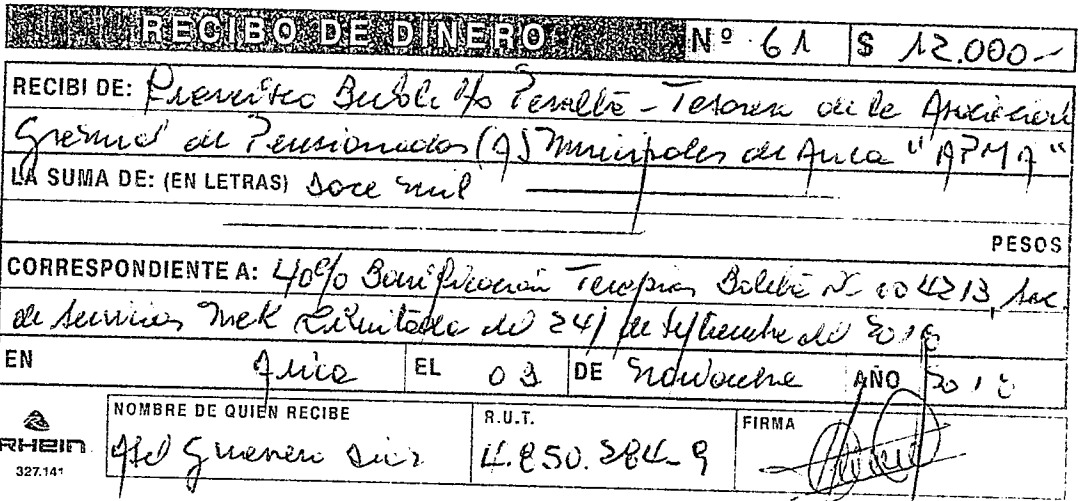 RECIBO DE DINERO Nº 61 $ 12.000.-
RECIBI DE: Francisco Peralta - Tesorera de la Asociación
Gremial de Pensionados (A) Municipales de Arica "APMA"
LA SUMA DE: (EN LETRAS) Doce mil
PESOS
CORRESPONDIENTE A: 40% Bonificación Terapias Boleta Nº 4213, Soc.
de Servicios Mek Limitada del 24/ de Septiembre del
EN Arica EL DE Noviembre AÑO
NOMBRE DE QUIEN RECIBE R.U.T. FIRMA
Guerrero
RHEIN
327.141